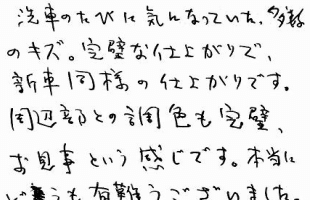 洗車のたびに気になっていた、多数
のキズ。完璧な仕上がりで、
新車同様の仕上がりです。
周辺部との調色も完璧、
お見事という感じです。本当に
どうも有難うございました。